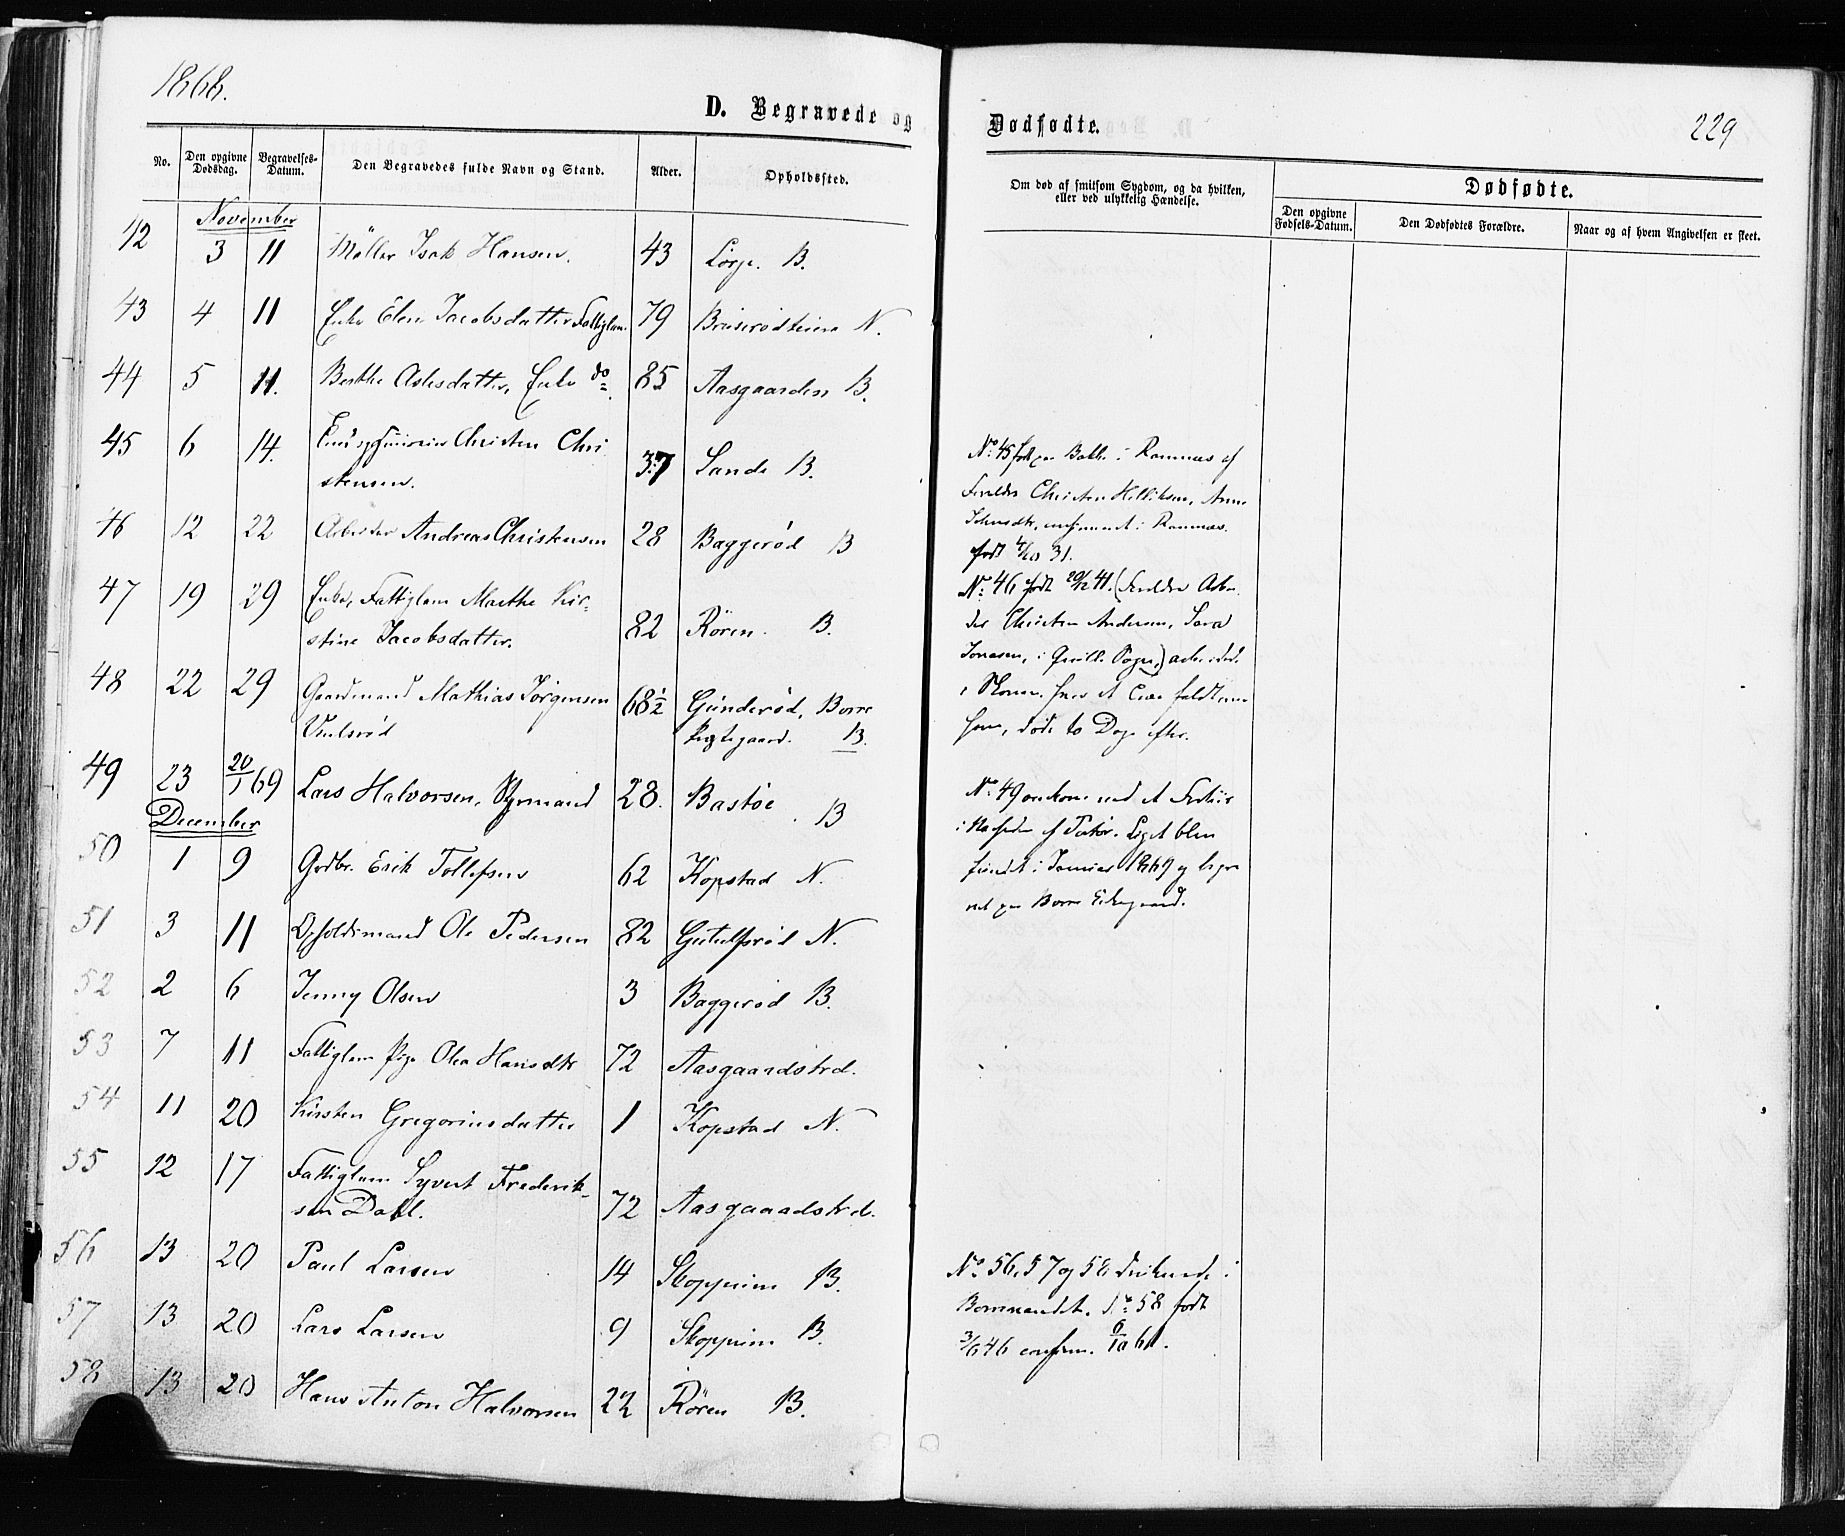 1868.
D. Begravede og Dødfødte.
229
No. Den opgivne Dødsdag. Begravelses-Datum. Den Begravedes fulde Navn og Stand. Alder. Opholdssted.
Om død af smitsom Sygdom, og da hvilken, eller ved ulykkelig Hændelse.
Dødfødte.
Den opgivne Fødsels-Datum. Den Dødfødtes Forældre. Naar og af hvem Angivelsen er skeet.
November
42 3 11 Møller Isak Hansen. 43 B.
43 4 11 Enke Elen Jacobsdatter Fattiglem. 79 N.
44 5 11. Berthe Aslesdatter, Enke do. 85 Aasgaarden B.
45 6 14. Christen Chri
stensen. 37 Sande B.
46 12 22 Arbeider Andreas Christensen 28 Baggerød B
47 19 29 Enke, Fattiglem Marthe Kir-
stine Jacobsdatter. 82 Røren. B.
48 22 29 Gaardmand Mathias Jørgensen 68½ Gunderød, Borre
Præstegaard. B.
49 23 20/1 69 Lars Halvorsen, Styrmand 28. Bastøe. B
December
50 1 9 Grdbr. Erik Tollefsen 62 Kopstad N.
51 3 11 Opholdsmand Ole Pedersen 82 N.
52 2 6 Jenny Olsen 3 Baggerød B.
53 7 11 Fattiglem Pige Olea Hansdtr 72 Aasgaardstrd.
54 11 20 Kirsten Gregoriusdatter 1 Kopstad N.
55 12 17 Fattiglem Syvert Frederik-
sen Dahl. 72 Aasgaardstrd.
56 13 20 Paul Larsen 14 Skoppum B.
57 13 20 Lars Larsen 9 Skoppum B.
58 13 20 Hans Anton Halvorsen 22 Røren B.
No. 45 født paa i Ramnæs af
Forældre Christen Anne
confirmeret i Ramnæs.
født 31.
No. 46 født 20/12 41. (Forældre Arbei
der Christen Andersen, Sara
i Sogn,) arbeided.
i Skoven, hvor et Træ faldt over
ham, døde to Dage efter.
No. 49 omkom ved et Forliis
i Nærheden af Liget blev
fundet i Januar 1869 og begra
vet paa Borre Kirkegaard.
No. 56, 57 og 58 druknede i
Borrevandet. No. 58 født
3/6 46 confirm. 6/10 61.